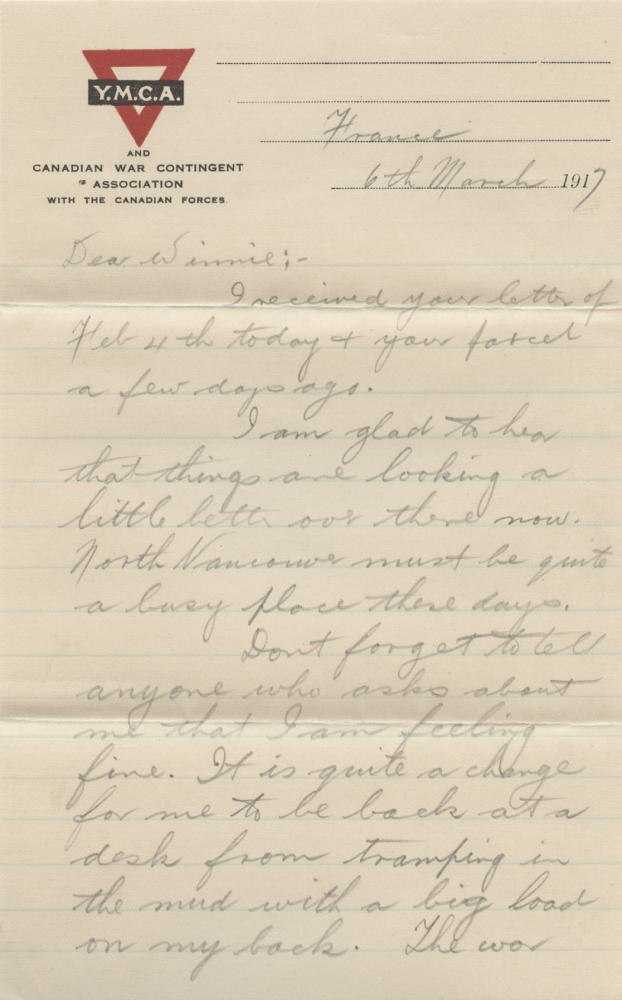 Y.M.C.A.
AND
CANADIAN WAR CONTINGENT
ASSOCIATION
WITH THE CANADIAN FORCES.
France
6th March 1917
Dear Winnie;-
I received your letter of
Feb 4th today & your parcel
a few days ago.
I am glad to hear
that things are looking a
little better over there now.
North Vancouver must be quite
a busy place these days.
Dont forget to tell
anyone who asks about
me that I am feeling
fine. It is quite a change
for me to be back at a
desk from tramping in
the mud with a big load
on my back. The war